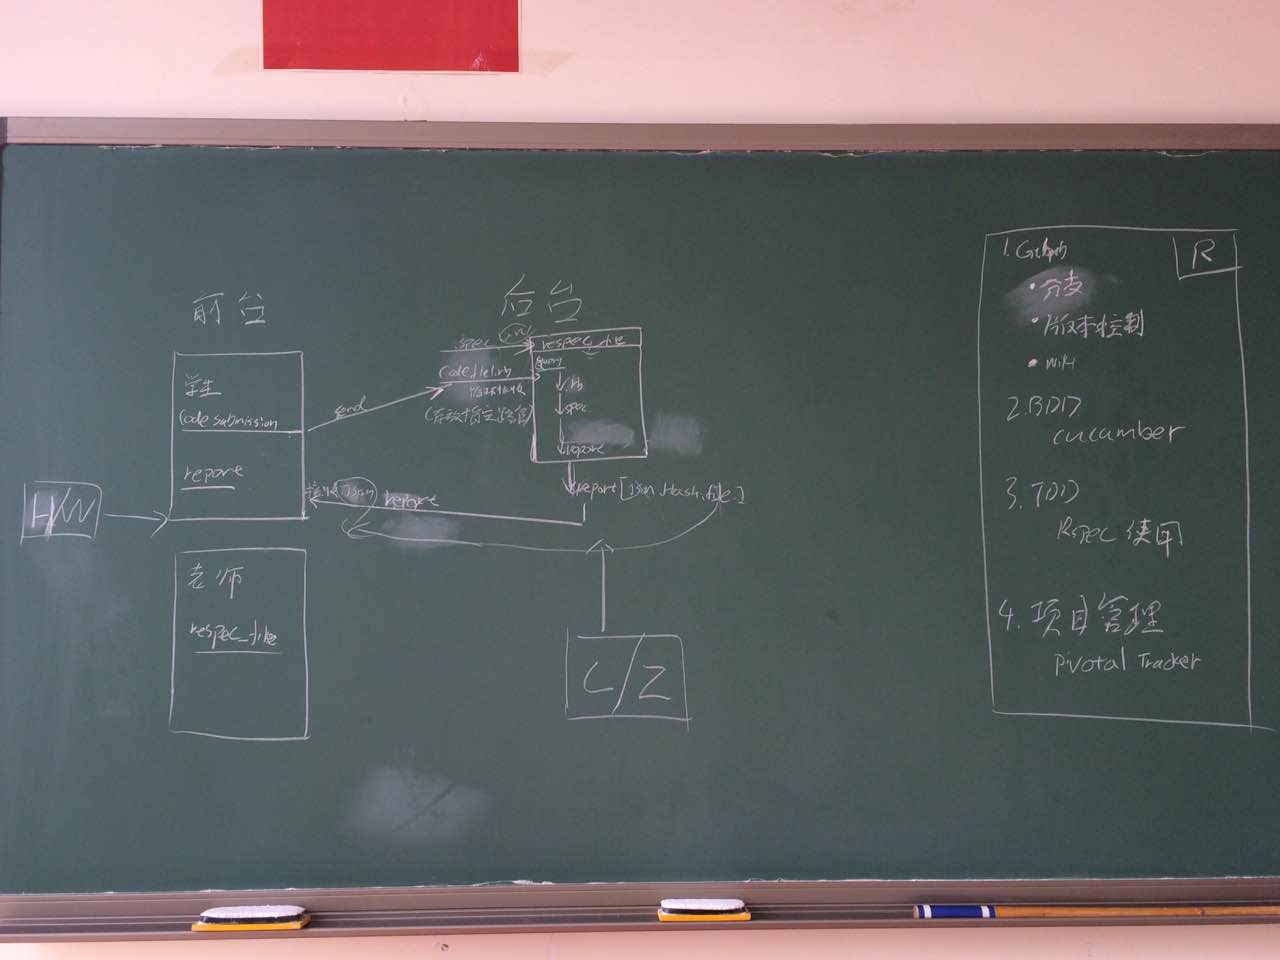 前台
学生
Code submission
report
H/W
老师
respec_file
send
后台
.spec
respec_file
query
.rb
spec
report
(存放指定路径)
report [Json.Hash.file.]
接收Json
report
C/Z
R
1. Github
• 分支
• 版本控制
• wiki
2. BDD
cucumber
3. TDD
Rspec 使用
4. 项目管理
Pivotal Tracker